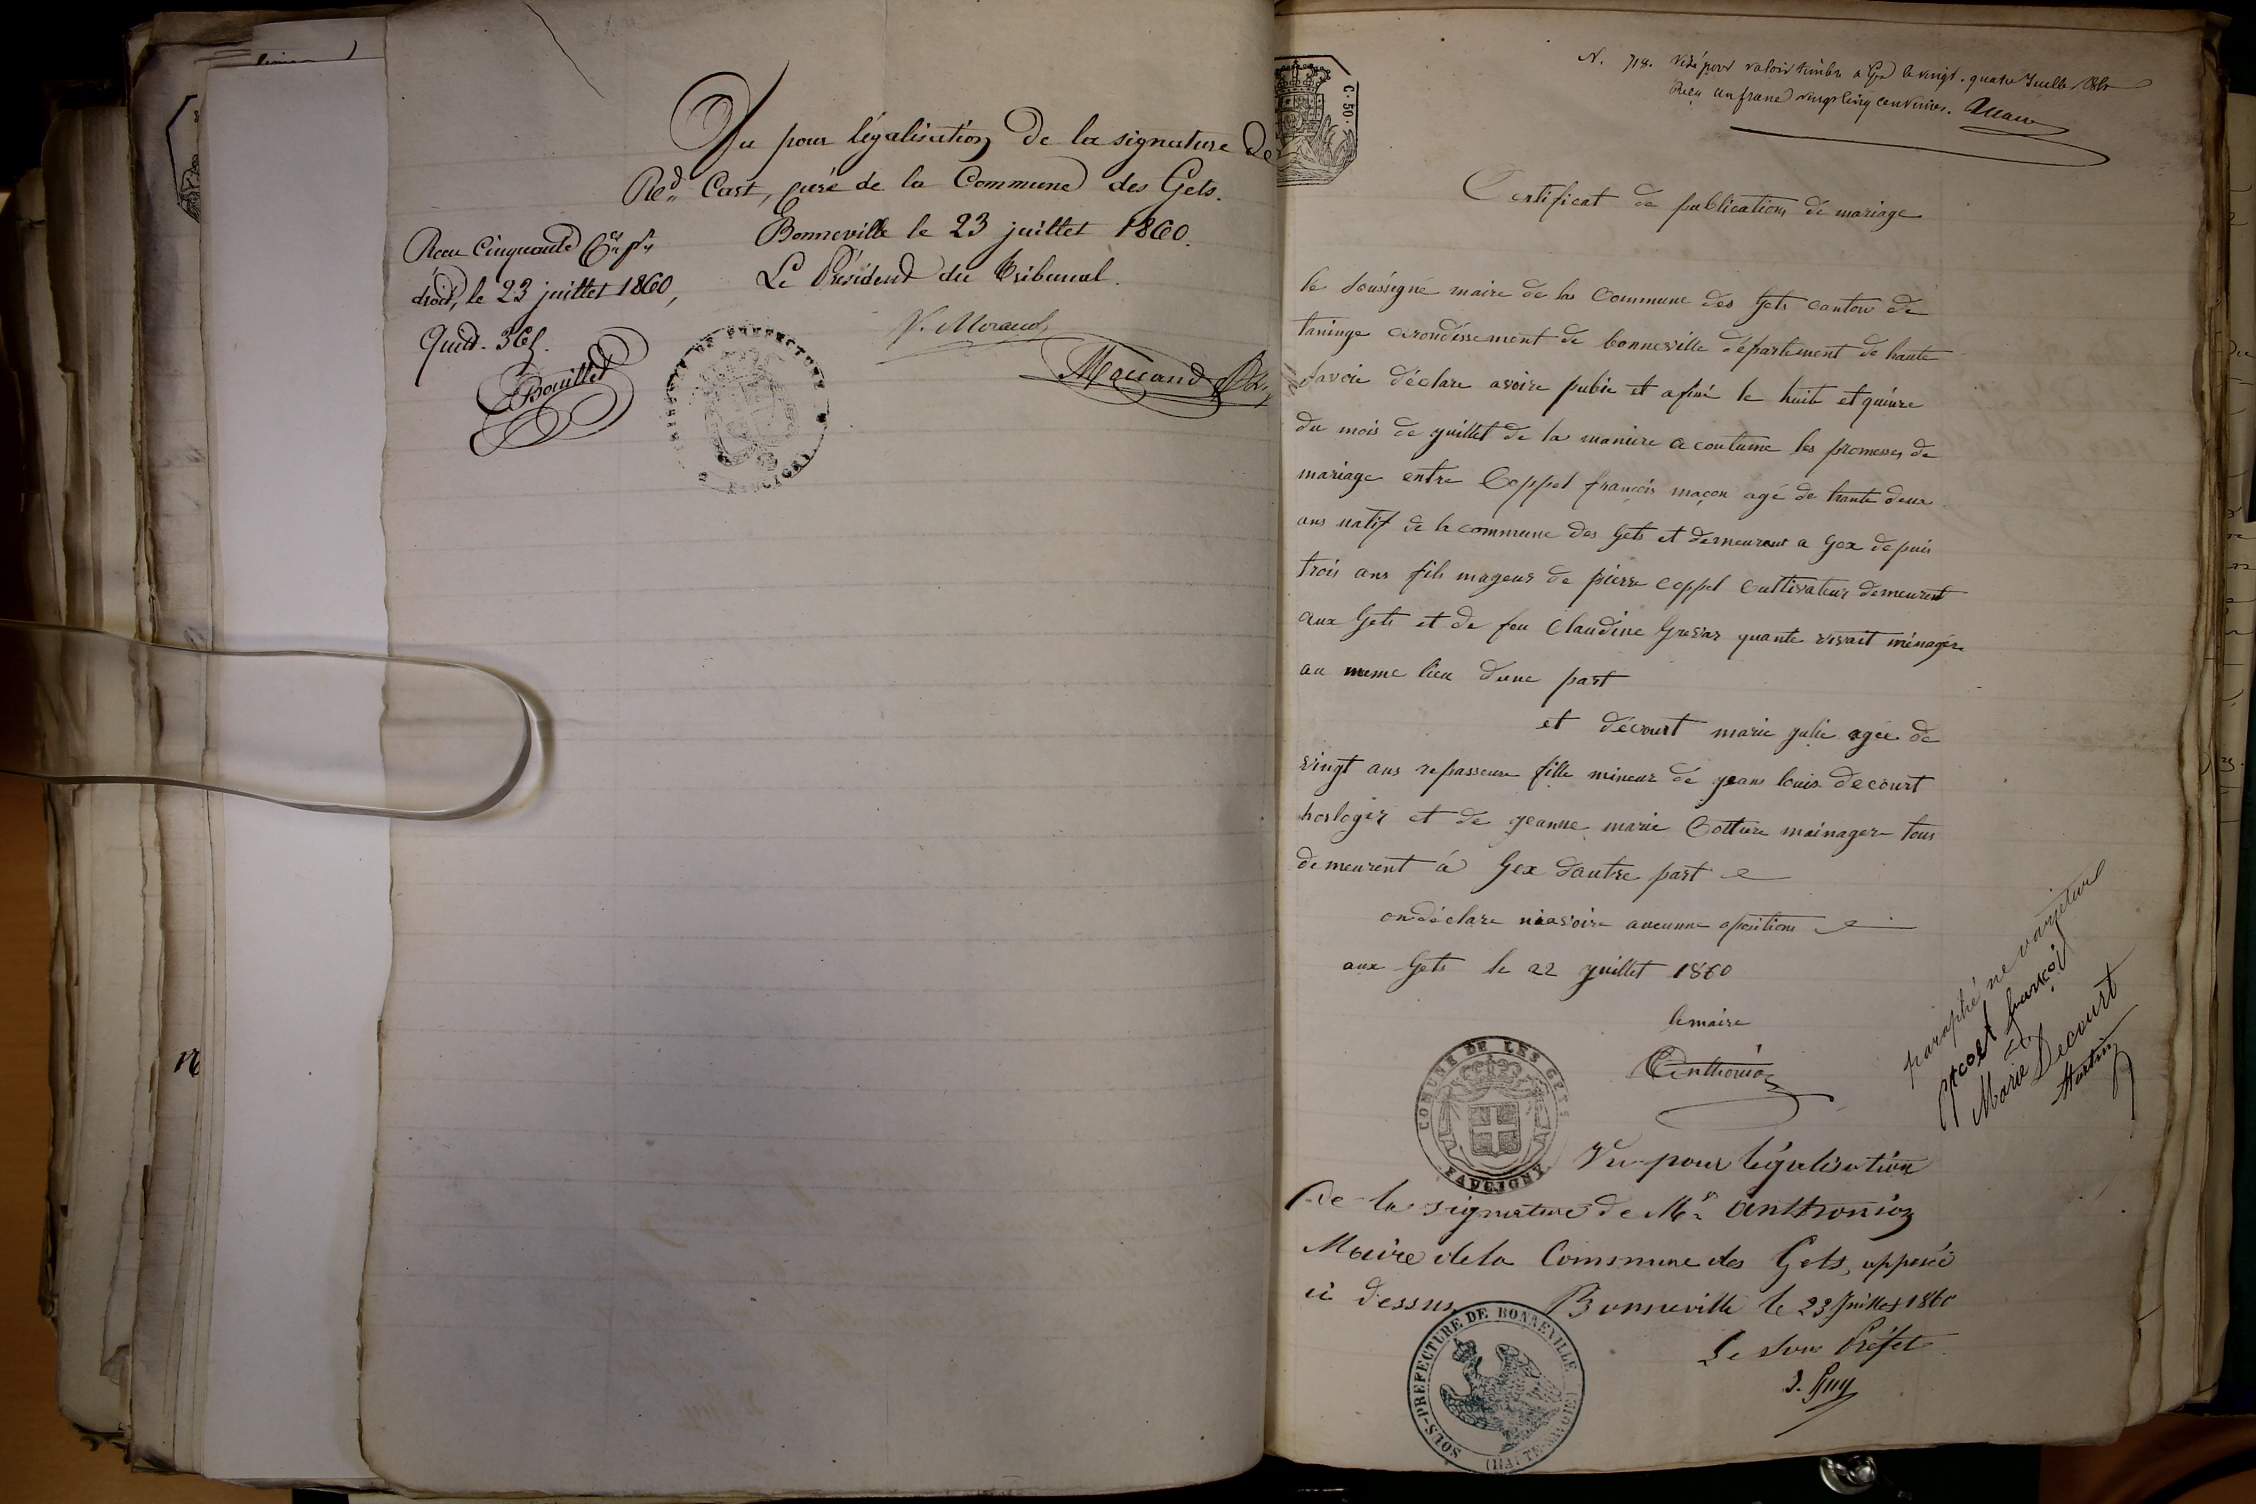 Vu pour légalisation de la signature de
Rd Cast, curé de la Commune des Gets.
Bonneville le 23 juillet 1860.
Le Président du Tribunal.
Recu Cinquante
droit, le 23 juillet 1860,
Quitt. 361.
Bouillet
C. 50.
N. 718. visé pour valoir timbre a Gex le vingt-quatre Juillet 1860
Reçu un franc vingt cinq centimes.
Certificat de publication de mariage
le soussigné maire de las Commune des Gets canton de
taninge arondissement de bonneville département de haute
Savoie déclare avoire publie et afiné le huit et quinze
du mois de yuillet de la maniere acoutume les promesses de
mariage entre Coppel françois maçon agé de trante deux
ans natif de la commune des Gets et demeurant a Gex depuis
trois ans fils mageur de pierre coppel cultivateur demeurent
aux Gets et de feu Claudine Grevas quante vivait ménagére
au meme lieu dune part
et décourt marie julie agée de
vingt ans repasseuse fille mineur de jean louis decourt
horloger et de jeanne marie Cotture mainagere tous
demeurent á Gex dautre part
on déclare niavoire aucunne oposition
aux Gets le 22 yuillet 1860
le maire
Anthonioz
COMUNE DE LES GETS
FAUCIGNY
paraphé ne varietur
Marie Decourt
Martin
Vu pour légalisation
de la signature de Mr Anthonioz
Maire de la Commune des Gets, apposée
ci dessus Bonneville le 23 Juillet 1860
Le Sous Préfet
J. Guy
SOUS-PREFECTURE DE BONNEVILLE
(HAUTE-SAVOIE)